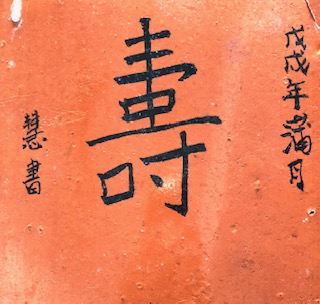 戊戌年蒲月
壽
慧書